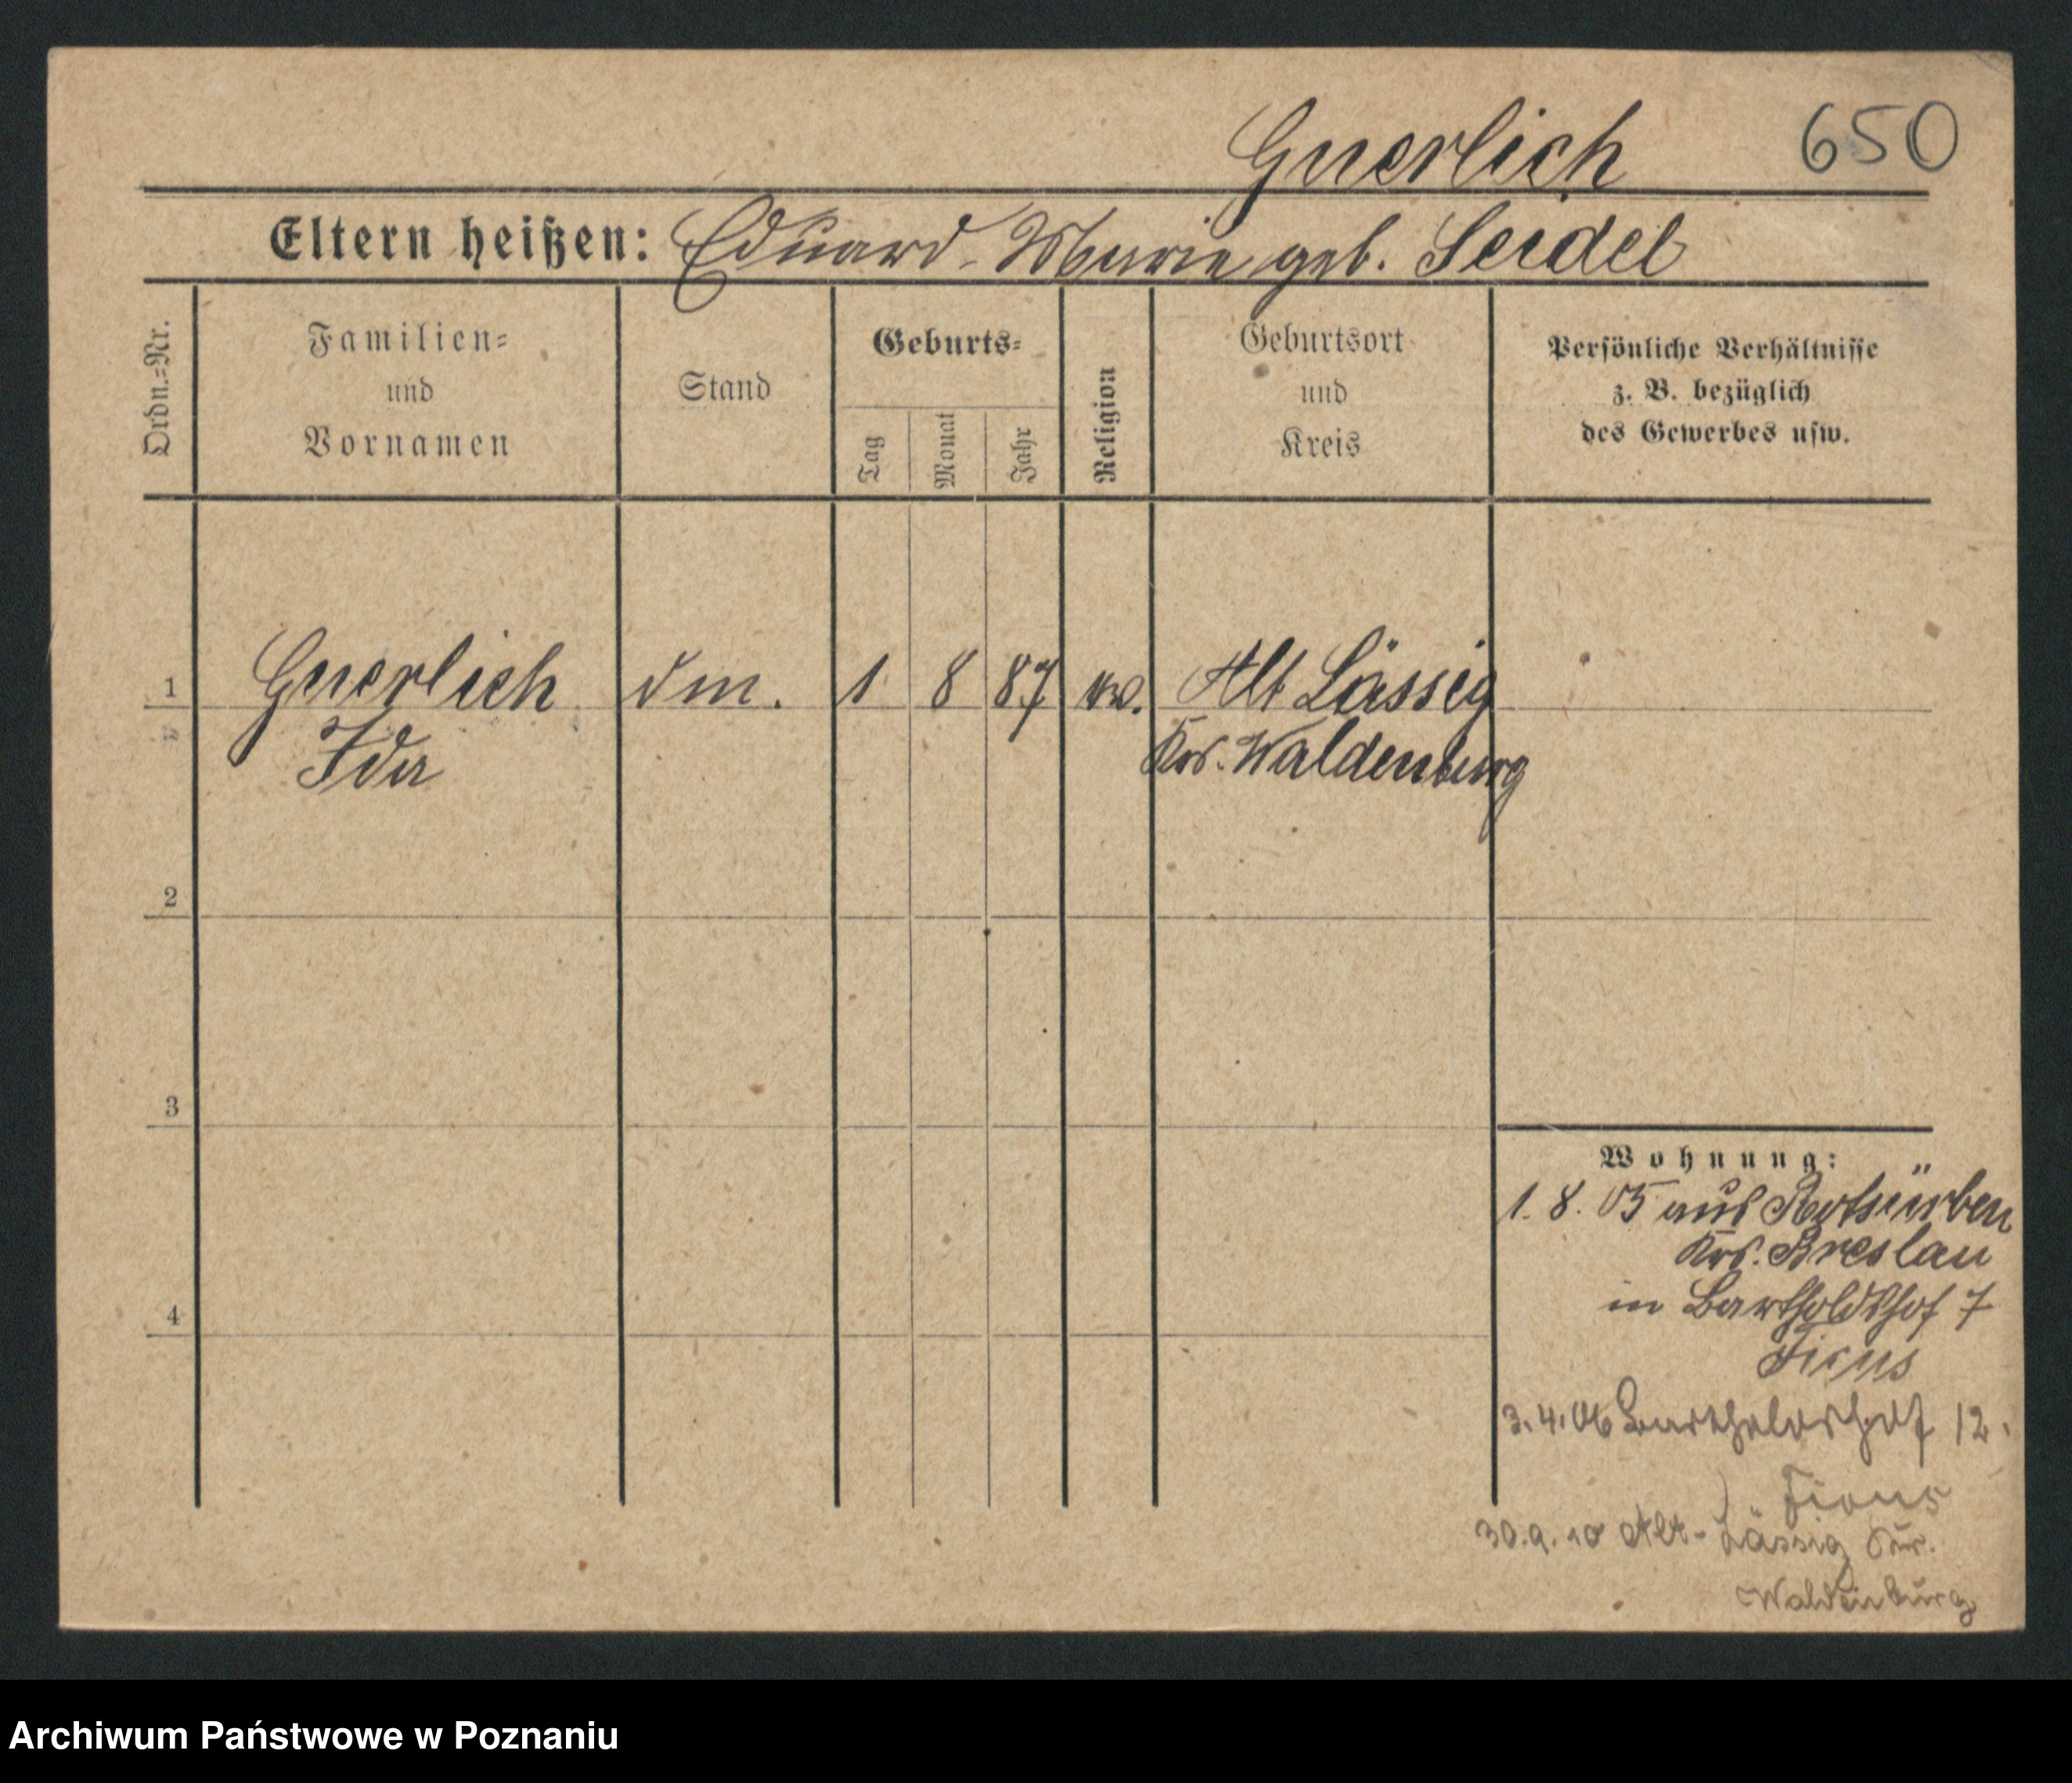 Gnerlich 650
Eltern heißen: Eduard - Marie geb. Seidel
Ordn.=Nr.
Familien=
und
Vornamen
Stand
Geburts=
Tag
Monat
Jahr
Religion
Geburtsort
und
Kreis
Persönliche Verhältnisse
z. B. bezüglich
des Gewerbes usw.
1 Gnerlich dm. 1 8 87 Alt Lässig
Ida Krs. Waldenburg
2
3
4
Wohnung:
1. 8. 05 aus Rotsürben
Krs. Breslau
in Bartholdshof 7
Ficus
3.4.06 Bartholdshof 12.
Ficus
30.9.10 Alt-Lässig Kr.
Waldenburg
Archiwum Państwowe w Poznaniu